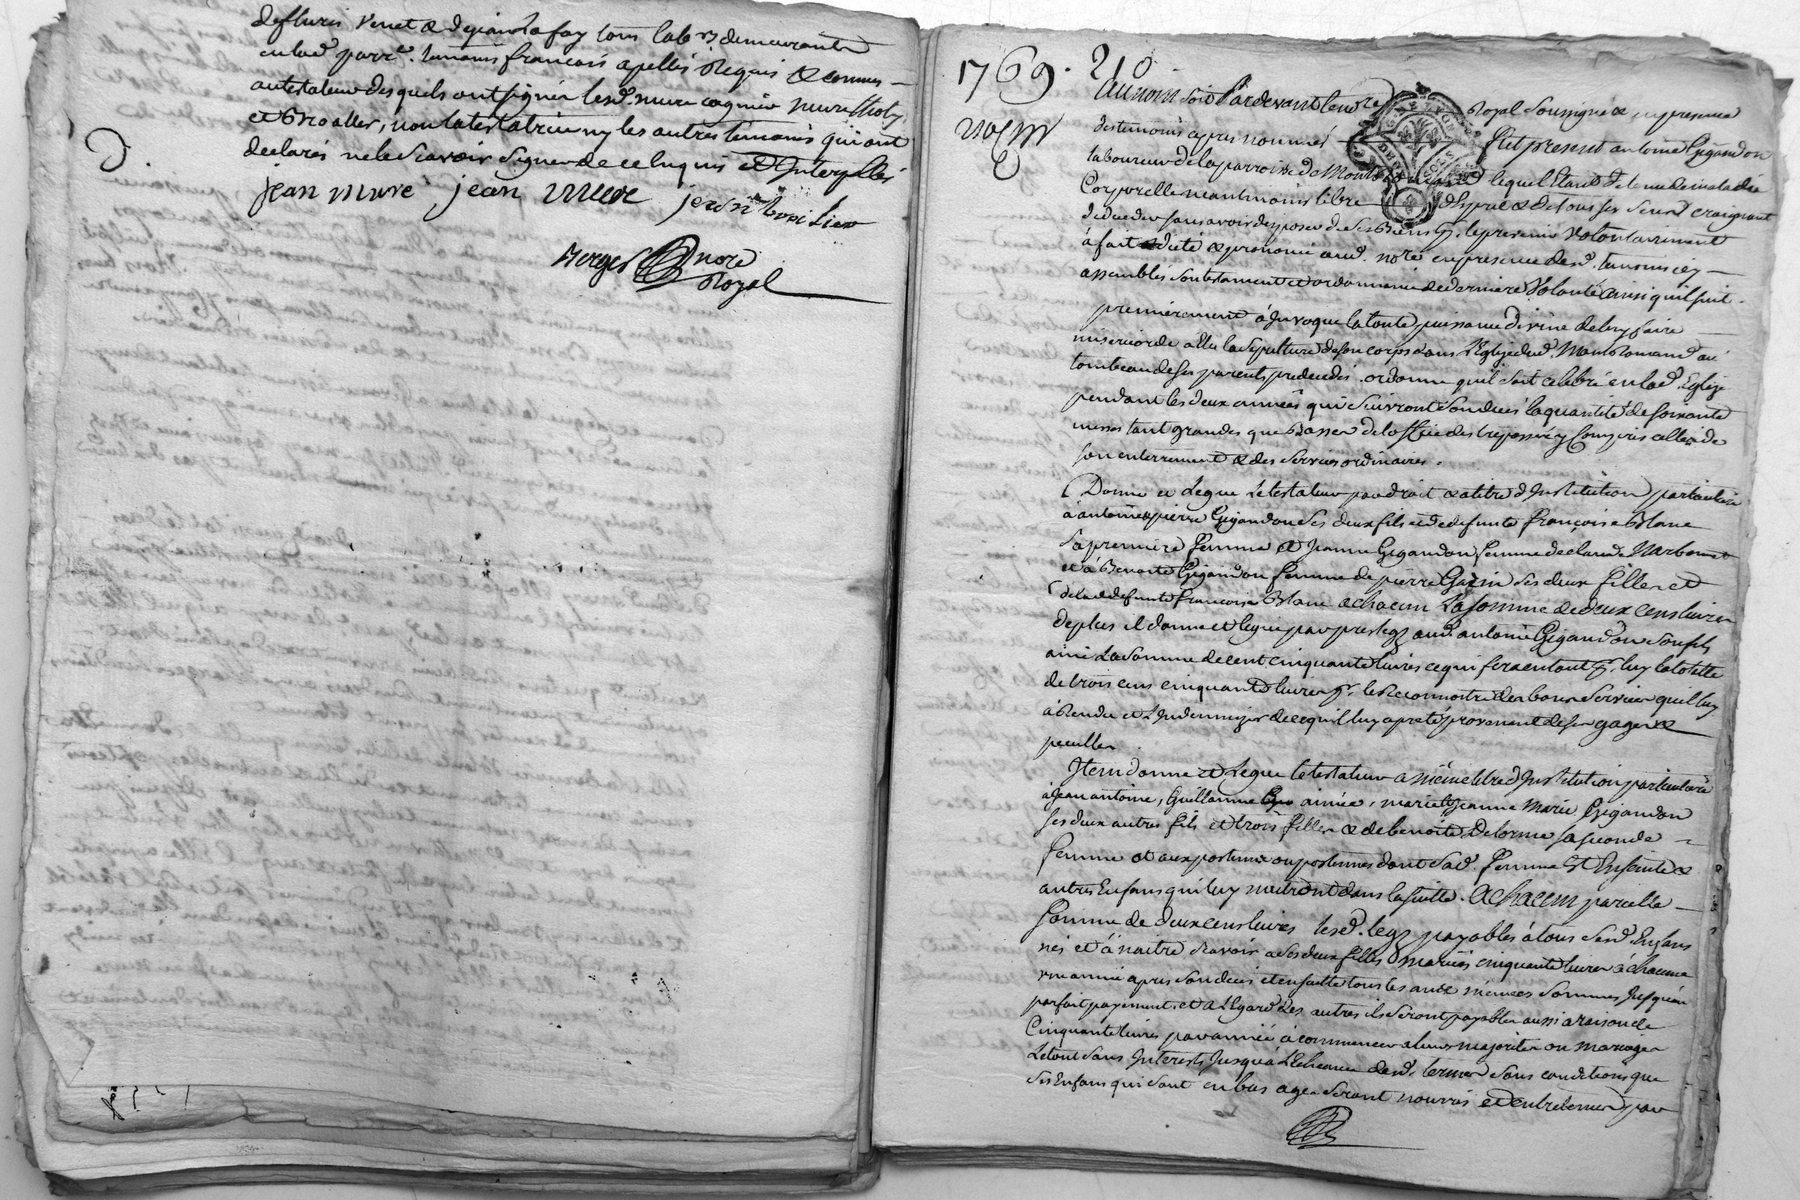 de fleuris venet & de grand la fay tous lab.rs demeurants
en lad. parr.e. temoins francois apellés Requis & connus
au testateur desquels ont signés lesd. mure cognier mure
et Broallier, non la testatrice ny les autres temoins qui ont
declarés ne le scavoir signer de ce Enquis et Interpellés
jean mure jean mure
Berger nore
Royal
1769. 210
Au nom soit Pardevant le no.re Royal Soussigné & en presence
des temoins apres nommés fut present antoine Gigandon
laboureur de la parroisse de Montromand lequel Etant detenu de maladie
Corporelle neantmoins libre d'Esprit & de tous ses sens craignant
de deceder sans avoir disposé de ses Biens volontairement
à fait dicté & prononcé aud. no.re en presence desd. temoins icy
assemblés son testament et ordonnance de derniere Volonté ainsi quil suit.
premierement à Invoqué la toute puissance divine de luy faire
misericorde a Elu la sepulture de son corps dans l'Eglise dud. Montromand au
tombeau de ses parents predecedés. ordonne quil soit celebré en lad. Eglise
pendant les deux années qui suivront son decés la quantité de soixante
messes tant grandes que Basses de l'office des trepassés y compris celles de
son enterrement & des services ordinaires.
Donne et Legue Le testateur par droit & titre d'Institution particuliere
à antoine & pierre Gigandon ses deux fils et de defunte françoise Blanc
sa premiere femme & Jeanne Gigandon femme de claude Narbonnet
et à Benoite Gigandon femme de pierre Gazin ses deux filles et
de lad. defunte francoise Blanc & chacun La somme de deux cens livres
de plus il donne et legue par prelegs aud. antoine Gigandon son fils
ainé La somme de cent cinquante livres ce qui fera en tout p.r luy la totalle
de trois cens cinquante livres p.r le Reconnoitre des bons services quil luy
à Rendu et L'Indemniser de ce quil luy a preté provenant de ses gages &
peculles
Item donne et Legue le testateur a même titre d'Institution particuliere
à Jean antoine, Guillaume aimée, marie & Jeanne Marie Gigandon
ses deux autres fils et trois filles & de benoite Delorme sa seconde
femme et aux postume ou postumes dont sad. femme Est Enceinte &
autres Enfans qui luy naitront dans la suitte. A chacun pareille
somme de deux cens livres lesd. legs payables à tous sesd. Enfans
nés et à naitre scavoir a ses deux filles mariées cinquante livres à chacune
une année apres son decés et ensuitte tous les ans mêmes sommes Jusqu'au
parfait payement et a l'Egard des autres ils seront payables aussi a raison de
Cinquante livres par année à commencer a leurs majorités ou mariages
Le tout sans Interests Jusqu'à l'Echeance desd. termes sous conditions que
ses Enfans qui sont en bas age seront nourris et entretenus par